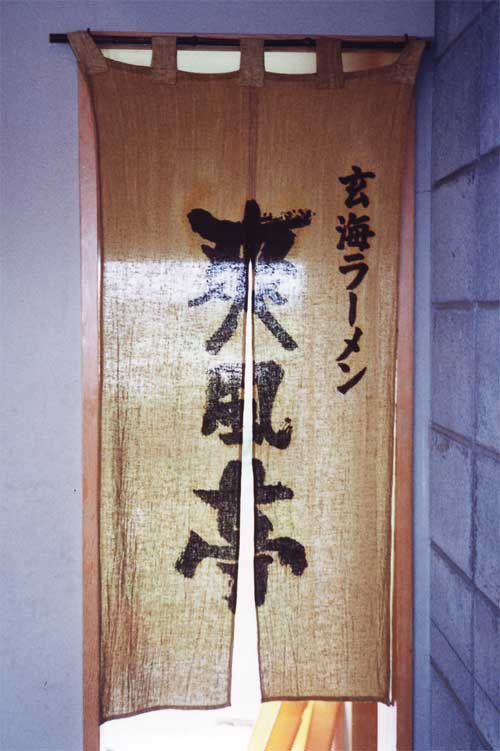 玄海ラーメン
爽風亭